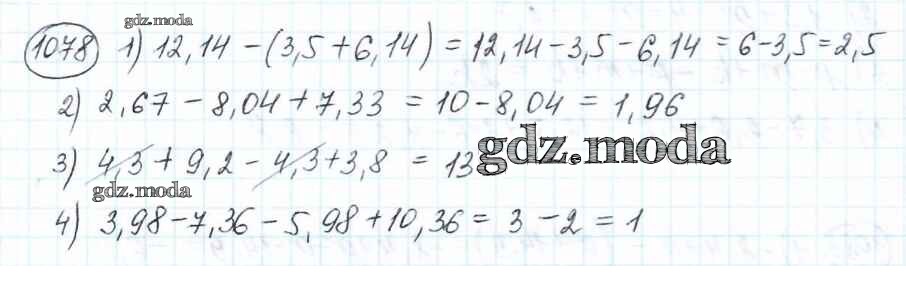 gdz.moda
1078 1) 12,14 - (3,5 + 6,14) = 12,14 - 3,5 - 6,14 = 6 - 3,5 = 2,5
2) 2,67 - 8,04 + 7,33 = 10 - 8,04 = 1,96
3) 4,3 + 9,2 - 4,3 + 3,8 = 13
gdz.moda
gdz.moda
4) 3,98 - 7,36 - 5,98 + 10,36 = 3 - 2 = 1